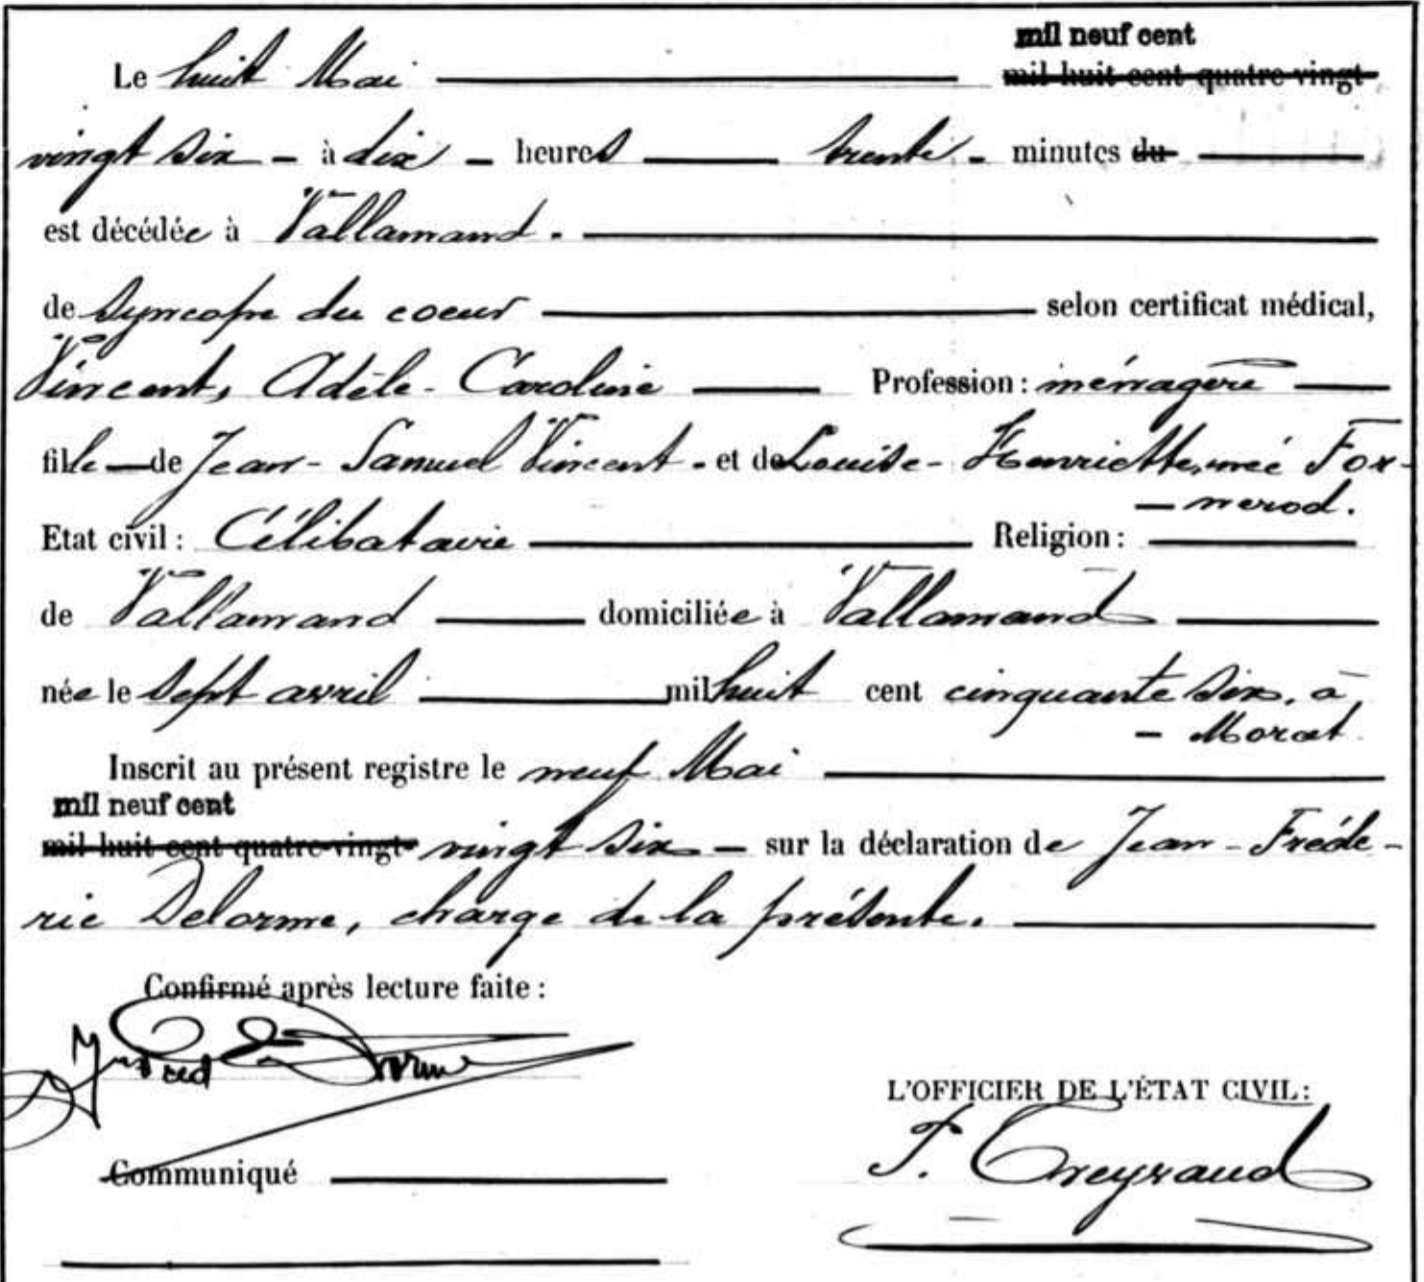 mil neuf cent
Le huit Mai mil huit cent quatre-vingt
vingt six - à dix - heures trente - minutes du
est décédée à Vallamand.
de syncope du coeur selon certificat médical,
Vincent, Adèle-Caroline Profession: ménagère
fille de Jean-Samuel Vincent - et de Louise-Henriette, née For-
- nerod.
Etat civil: Célibataire Religion:
de Vallamand domiciliée à Vallamand
née le sept avril mil huit cent cinquante six, à
- Morat.
Inscrit au présent registre le neuf Mai
mil neuf cent
mil huit cent quatre-vingt- vingt six - sur la déclaration de Jean-Fréde-
ric Delorme, charge de la présente.
Confirmé après lecture faite:
L'OFFICIER DE L'ÉTAT CIVIL:
Communiqué